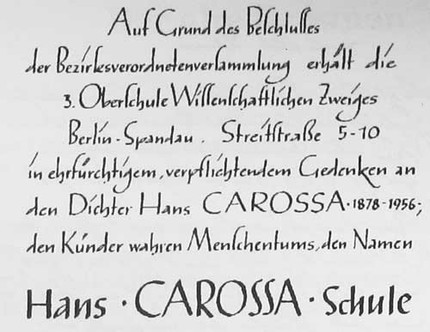 Auf Grund des Beſchluſſes
der Bezirksverordnetenverſammlung erhält die
3. Oberſchule Wiſſenſchaftlichen Zweiges
Berlin-Spandau. Streitſtraße 5-10
in ehrfürchtigem, verpflichtendem Gedenken an
den Dichter Hans CAROSSA · 1878-1956;
den Künder wahren Menſchentums, den Namen
Hans · CAROSSA · Schule